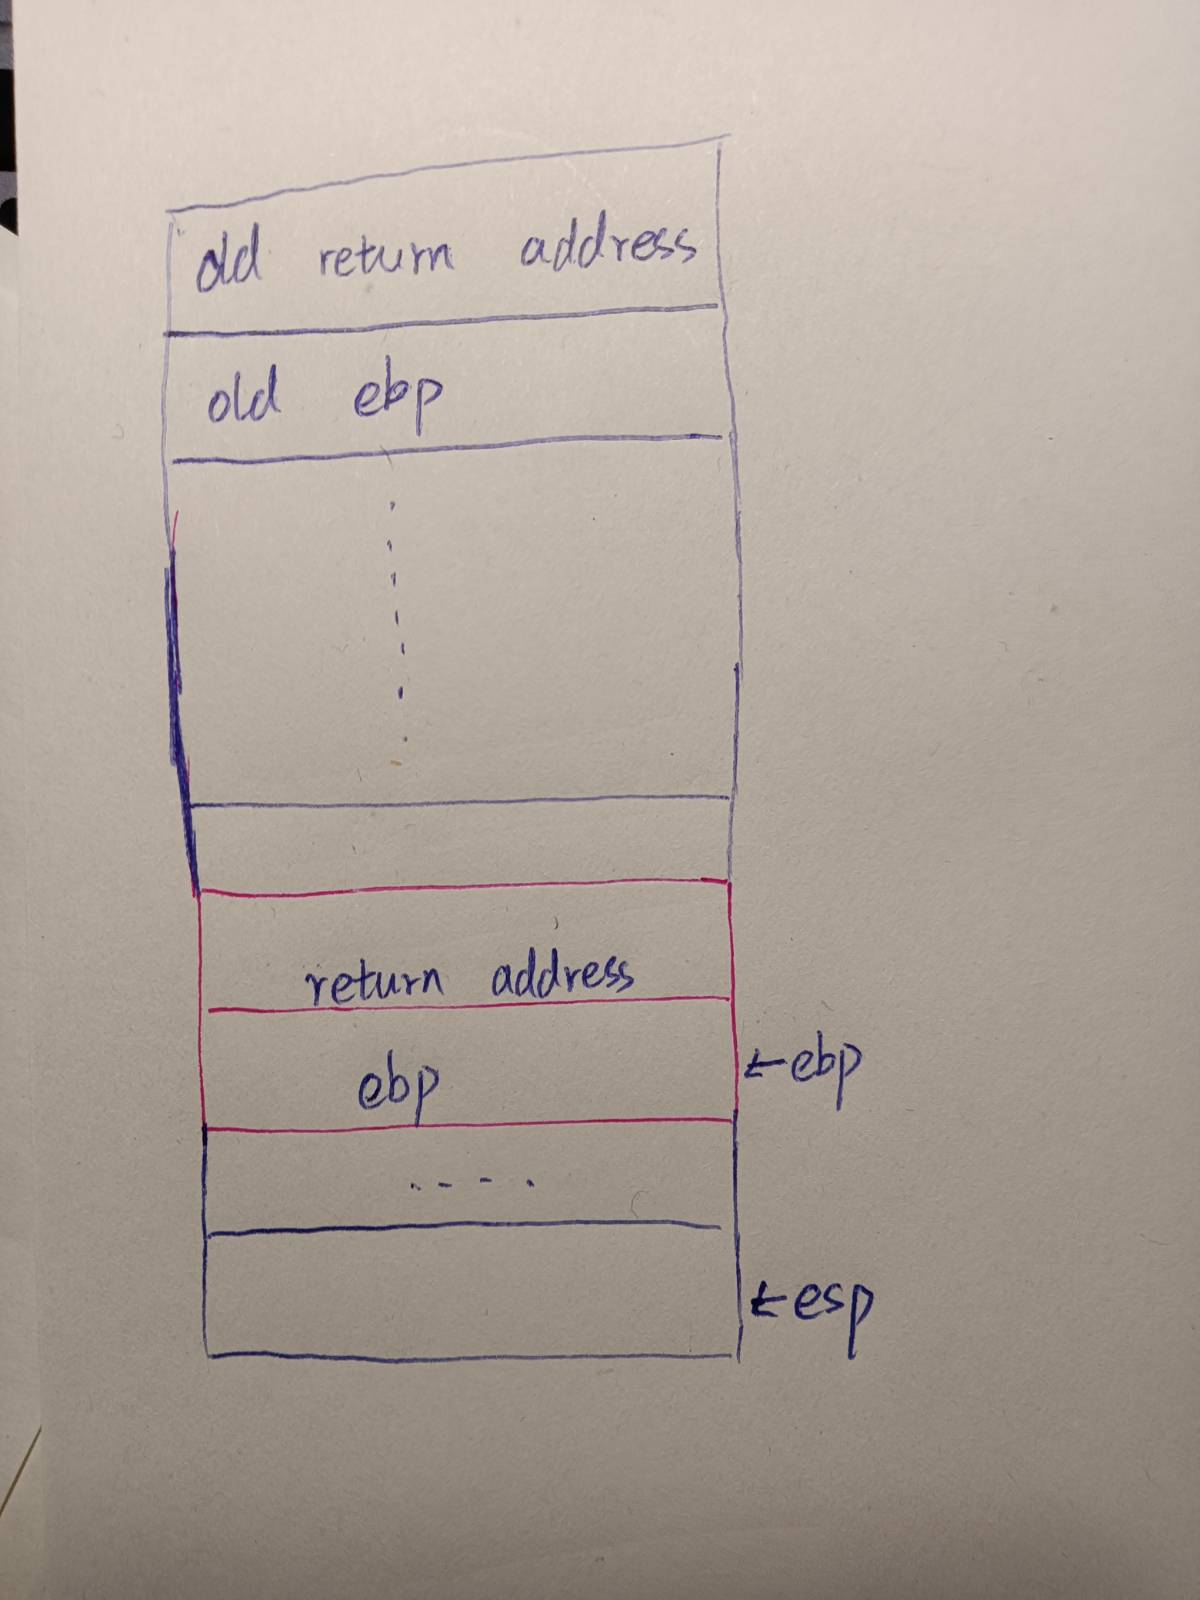 old return address
old ebp
return address
ebp
←ebp
←esp